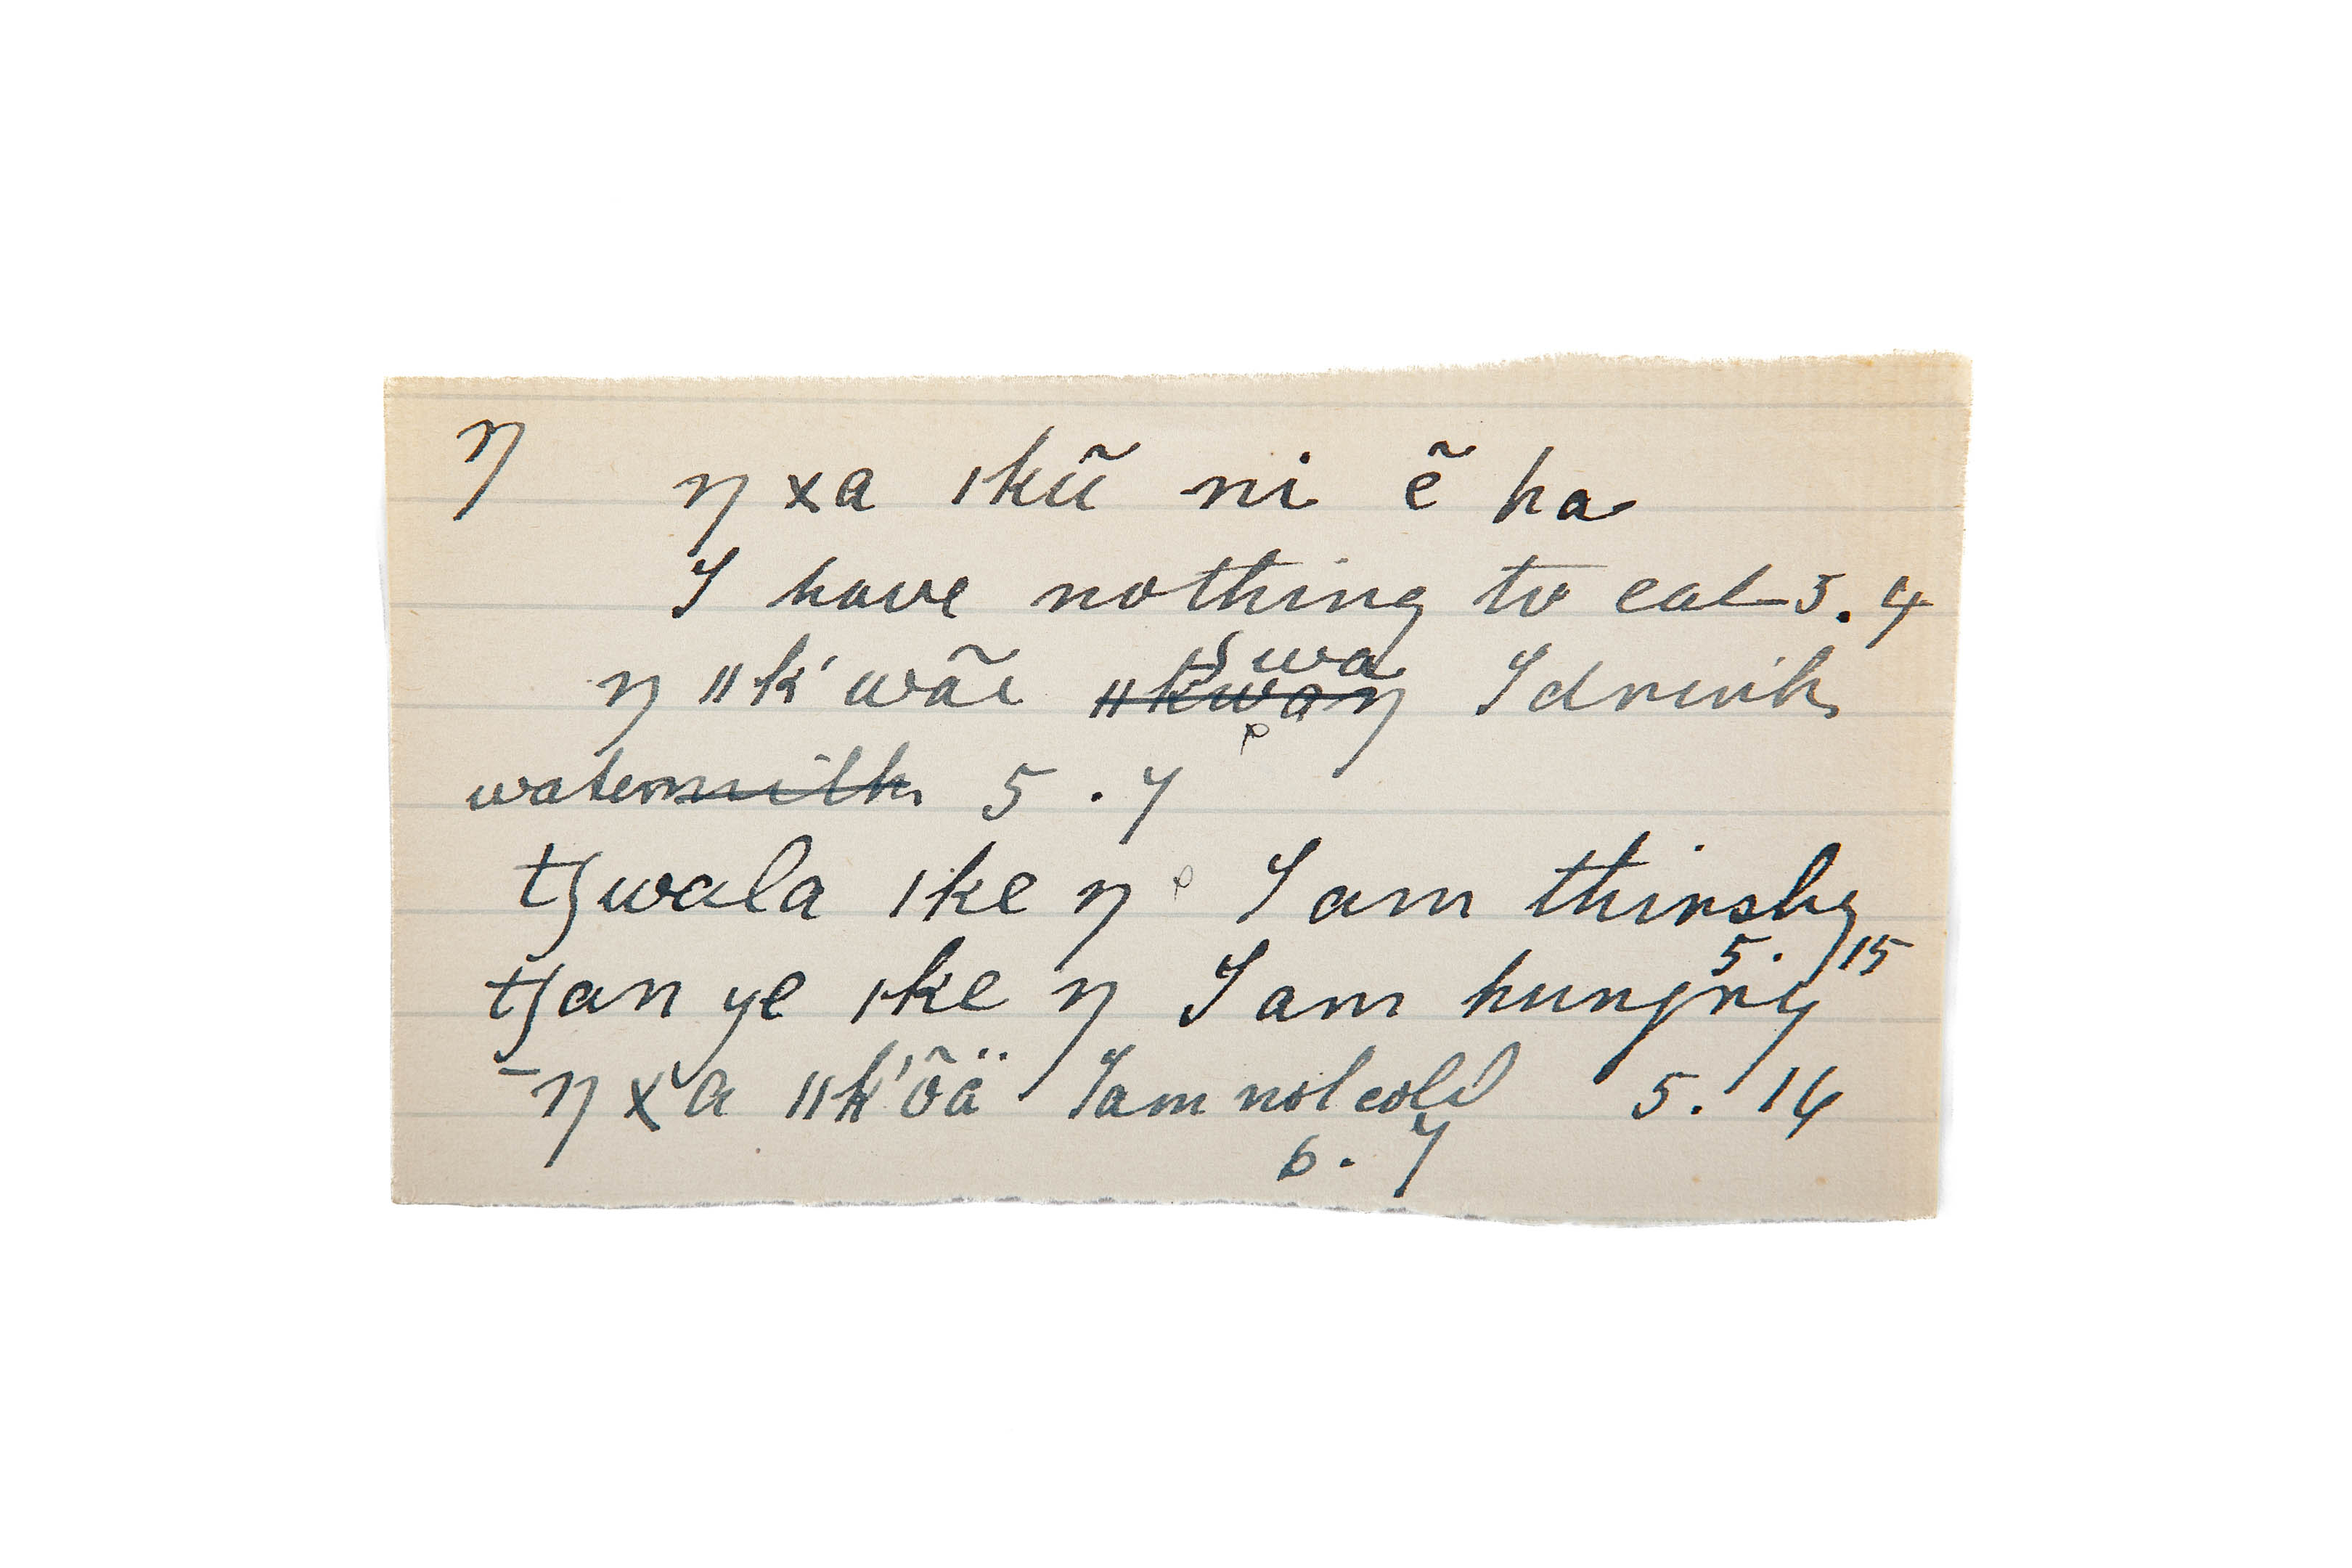 ŋ ŋ xa ǀkũ ni ẽ ha
I have nothing to eat 5.4
ŋ ǁk'wãi ǁkwaŋ tʃwa I drink
water milk 5.7
tʃwala ǀke ŋ I am thirsty
5. 15
tʃan ye ǀke ŋ I am hungry
ŋ xa ǁk'õä I am not cold 5. 14
6. 7